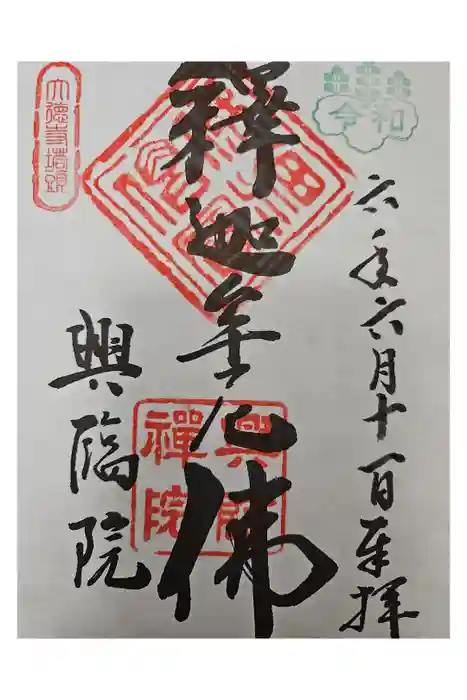 令和
六年六月十一日奉拝
釋迦牟尼佛
興臨
禪院
大徳寺塔頭
興臨院